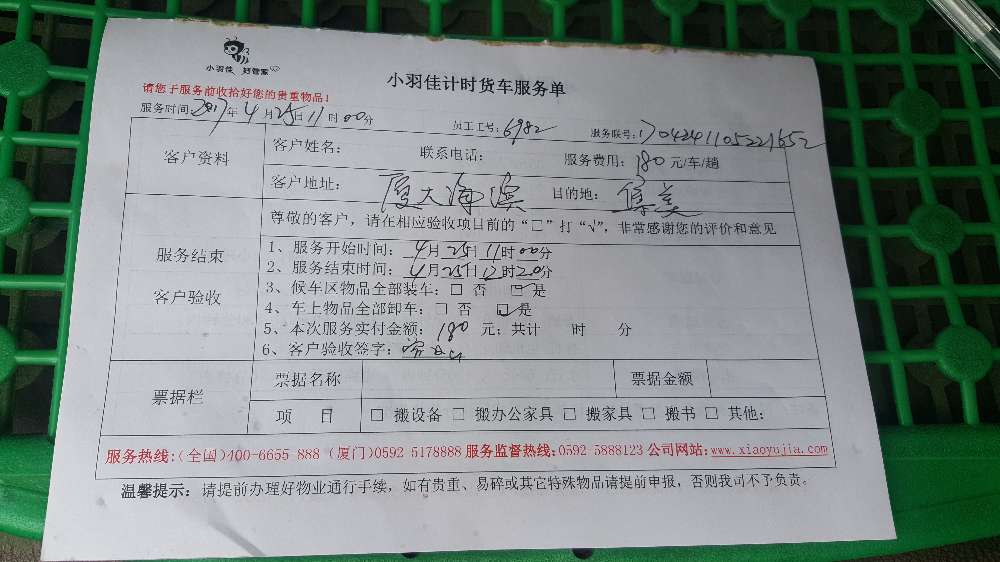 小羽佳 好管家
小羽佳计时货车服务单
请您于服务前收拾好您的贵重物品！
服务时间：2017年4月25日11时00分 员工工号：6982 服务联号：1704241105221652
客户资料
客户姓名： 联系电话： 服务费用：180元/车/趟
客户地址： 厦大海滨 目的地： 集美
服务结束
客户验收
尊敬的客户，请在相应验收项目前的“□”打“√”，非常感谢您的评价和意见
1、服务开始时间：4月25日11时00分
2、服务结束时间：4月25日12时20分
3、候车区物品全部装车：□ 否 ☑是
4、车上物品全部卸车：□ 否 ☑是
5、本次服务实付金额：180 元；共计 时 分
6、客户验收签字：
票据栏
票据名称 票据金额
项 目 □ 搬设备 □ 搬办公家具 □ 搬家具 □ 搬书 □ 其他：
服务热线：(全国)400-6655 888 (厦门)0592 5178888 服务监督热线：0592 5888123 公司网站：www.xiaoyujia.com
温馨提示：请提前办理好物业通行手续，如有贵重、易碎或其它特殊物品请提前申报，否则我司不予负责。